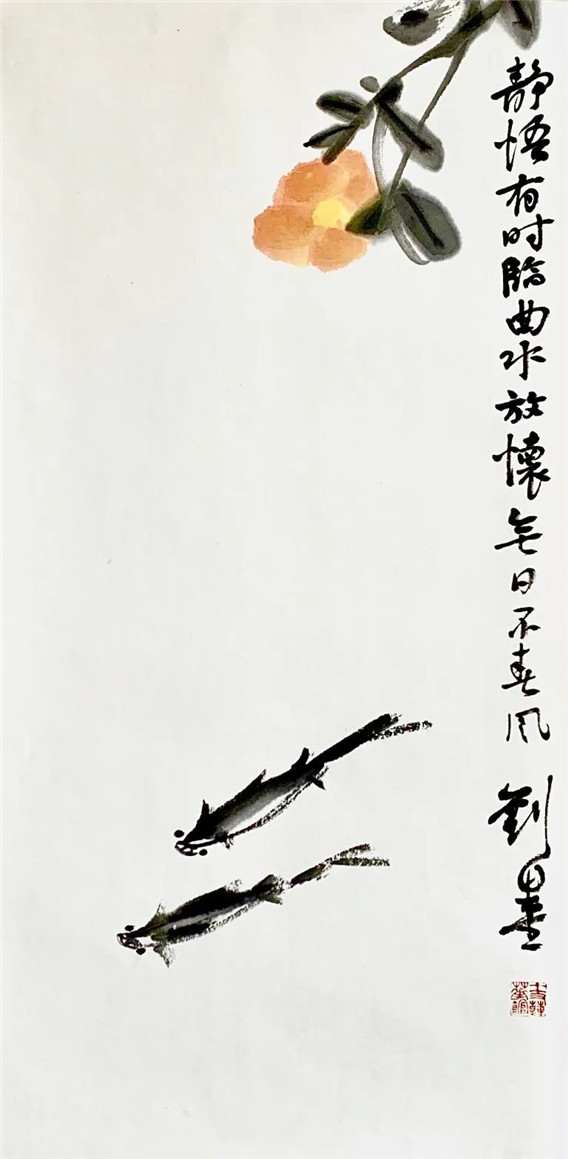 静悟有时临曲水放懷無日不春风
劉墨